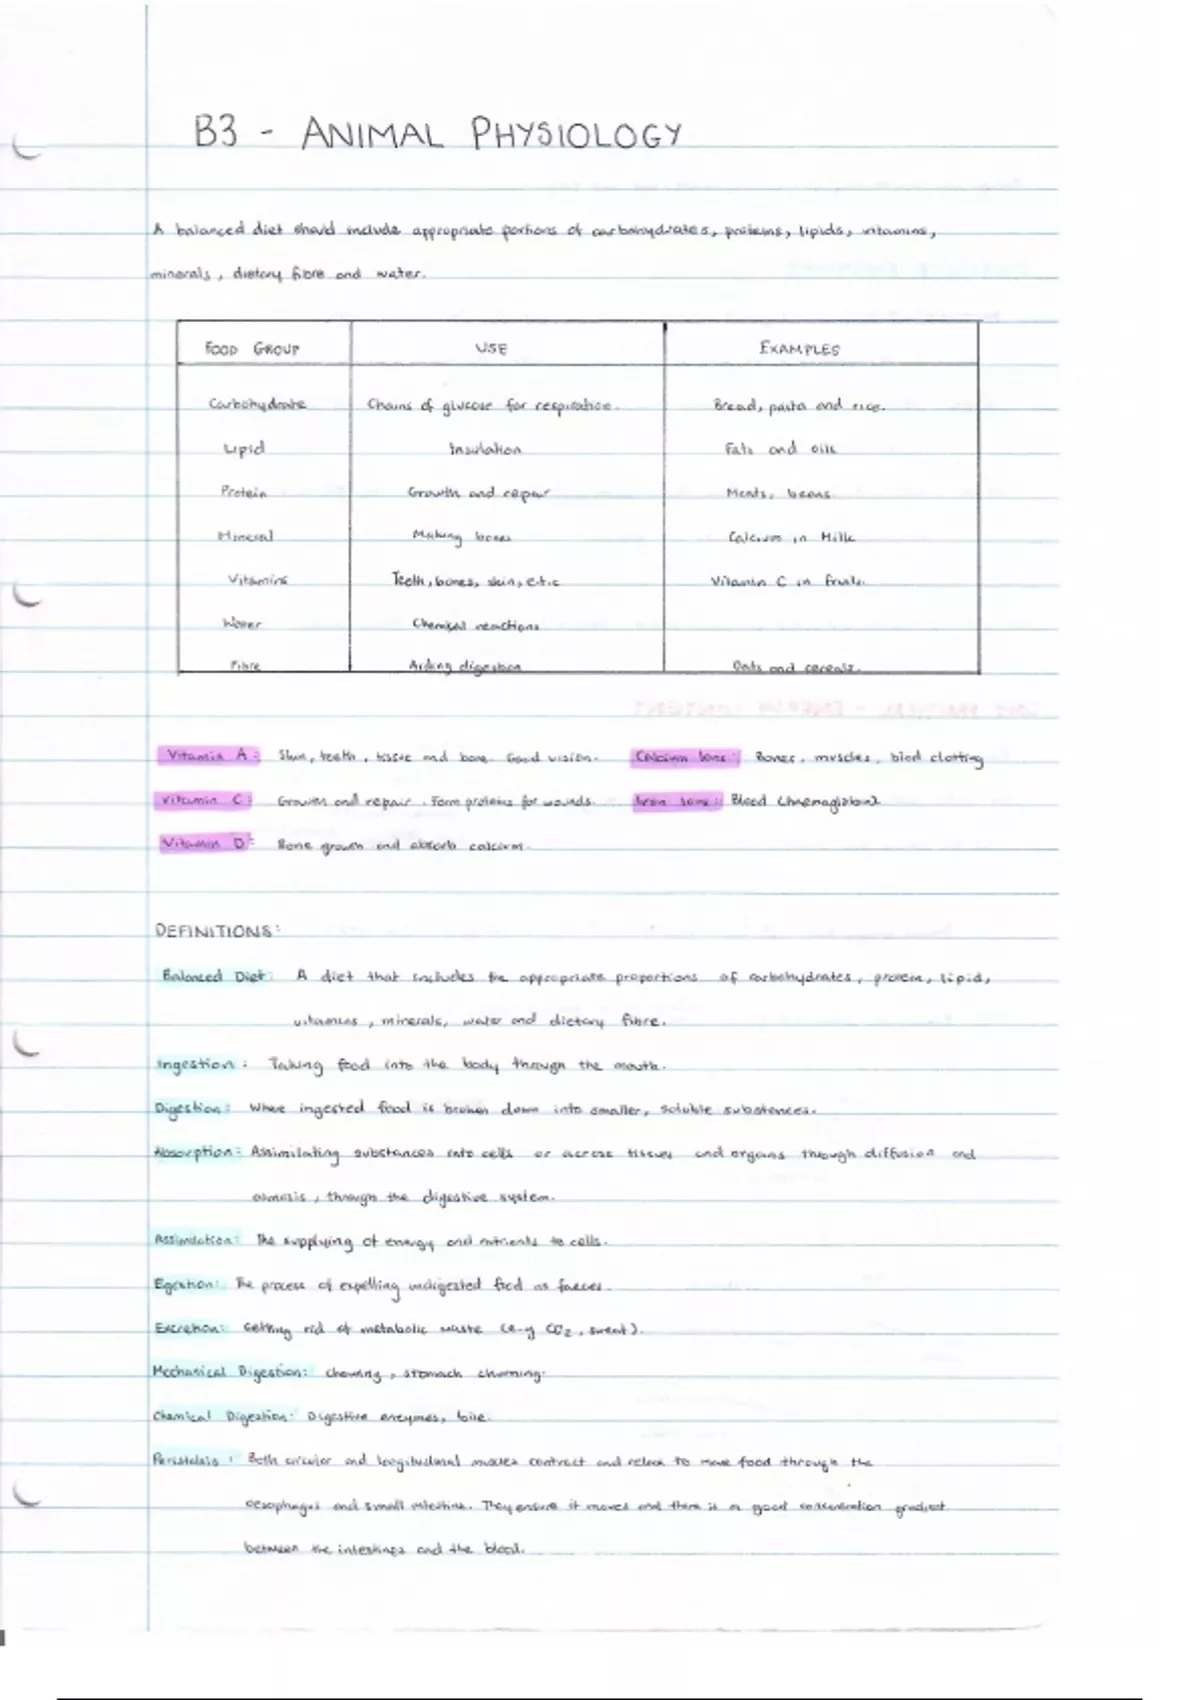 B3 - ANIMAL PHYSIOLOGY
A balanced diet should include appropriate portions of carbohydrates, proteins, lipids, vitamins,
minerals, dietary fibre and water.
FOOD GROUP USE EXAMPLES
Carbohydrate Chains of glucose for respiration. Bread, pasta and rice.
Lipid Insulation Fats and oils
Protein Growth and repair Meats, beans.
Mineral Making bones Calcium in Milk
Vitamins Teeth, bones, skin, e.t.c Vitamin C in fruits.
Water Chemical reactions
Fibre Aiding digestion Oats and cereals.
Vitamin A: Skin, teeth, tissue and bone. Good vision. Calcium Ions: Bones, muscles, blood clotting
Vitamin C: Growth and repair. Form proteins for wounds. Iron Ions: Blood (haemoglobin)
Vitamin D: Bone growth and absorb calcium.
DEFINITIONS:
Balanced Diet: A diet that includes the appropriate proportions of carbohydrates, protein, lipid,
vitamins, minerals, water and dietary fibre.
Ingestion: Taking food into the body through the mouth.
Digestion: Where ingested food is broken down into smaller, soluble substances.
Absorption: Assimilating substances into cells or across tissues and organs through diffusion and
osmosis, through the digestive system.
Assimilation: The supplying of energy and nutrients to cells.
Egestion: The process of expelling undigested food as faeces.
Excretion: Getting rid of metabolic waste (e.g CO2, sweat).
Mechanical Digestion: chewing, stomach churning.
Chemical Digestion: Digestive enzymes, bile.
Peristalsis: Both circular and longitudinal muscles contract and relax to move food through the
oesophagus and small intestine. They ensure it moves and there is a good concentration gradient
between the intestines and the blood.